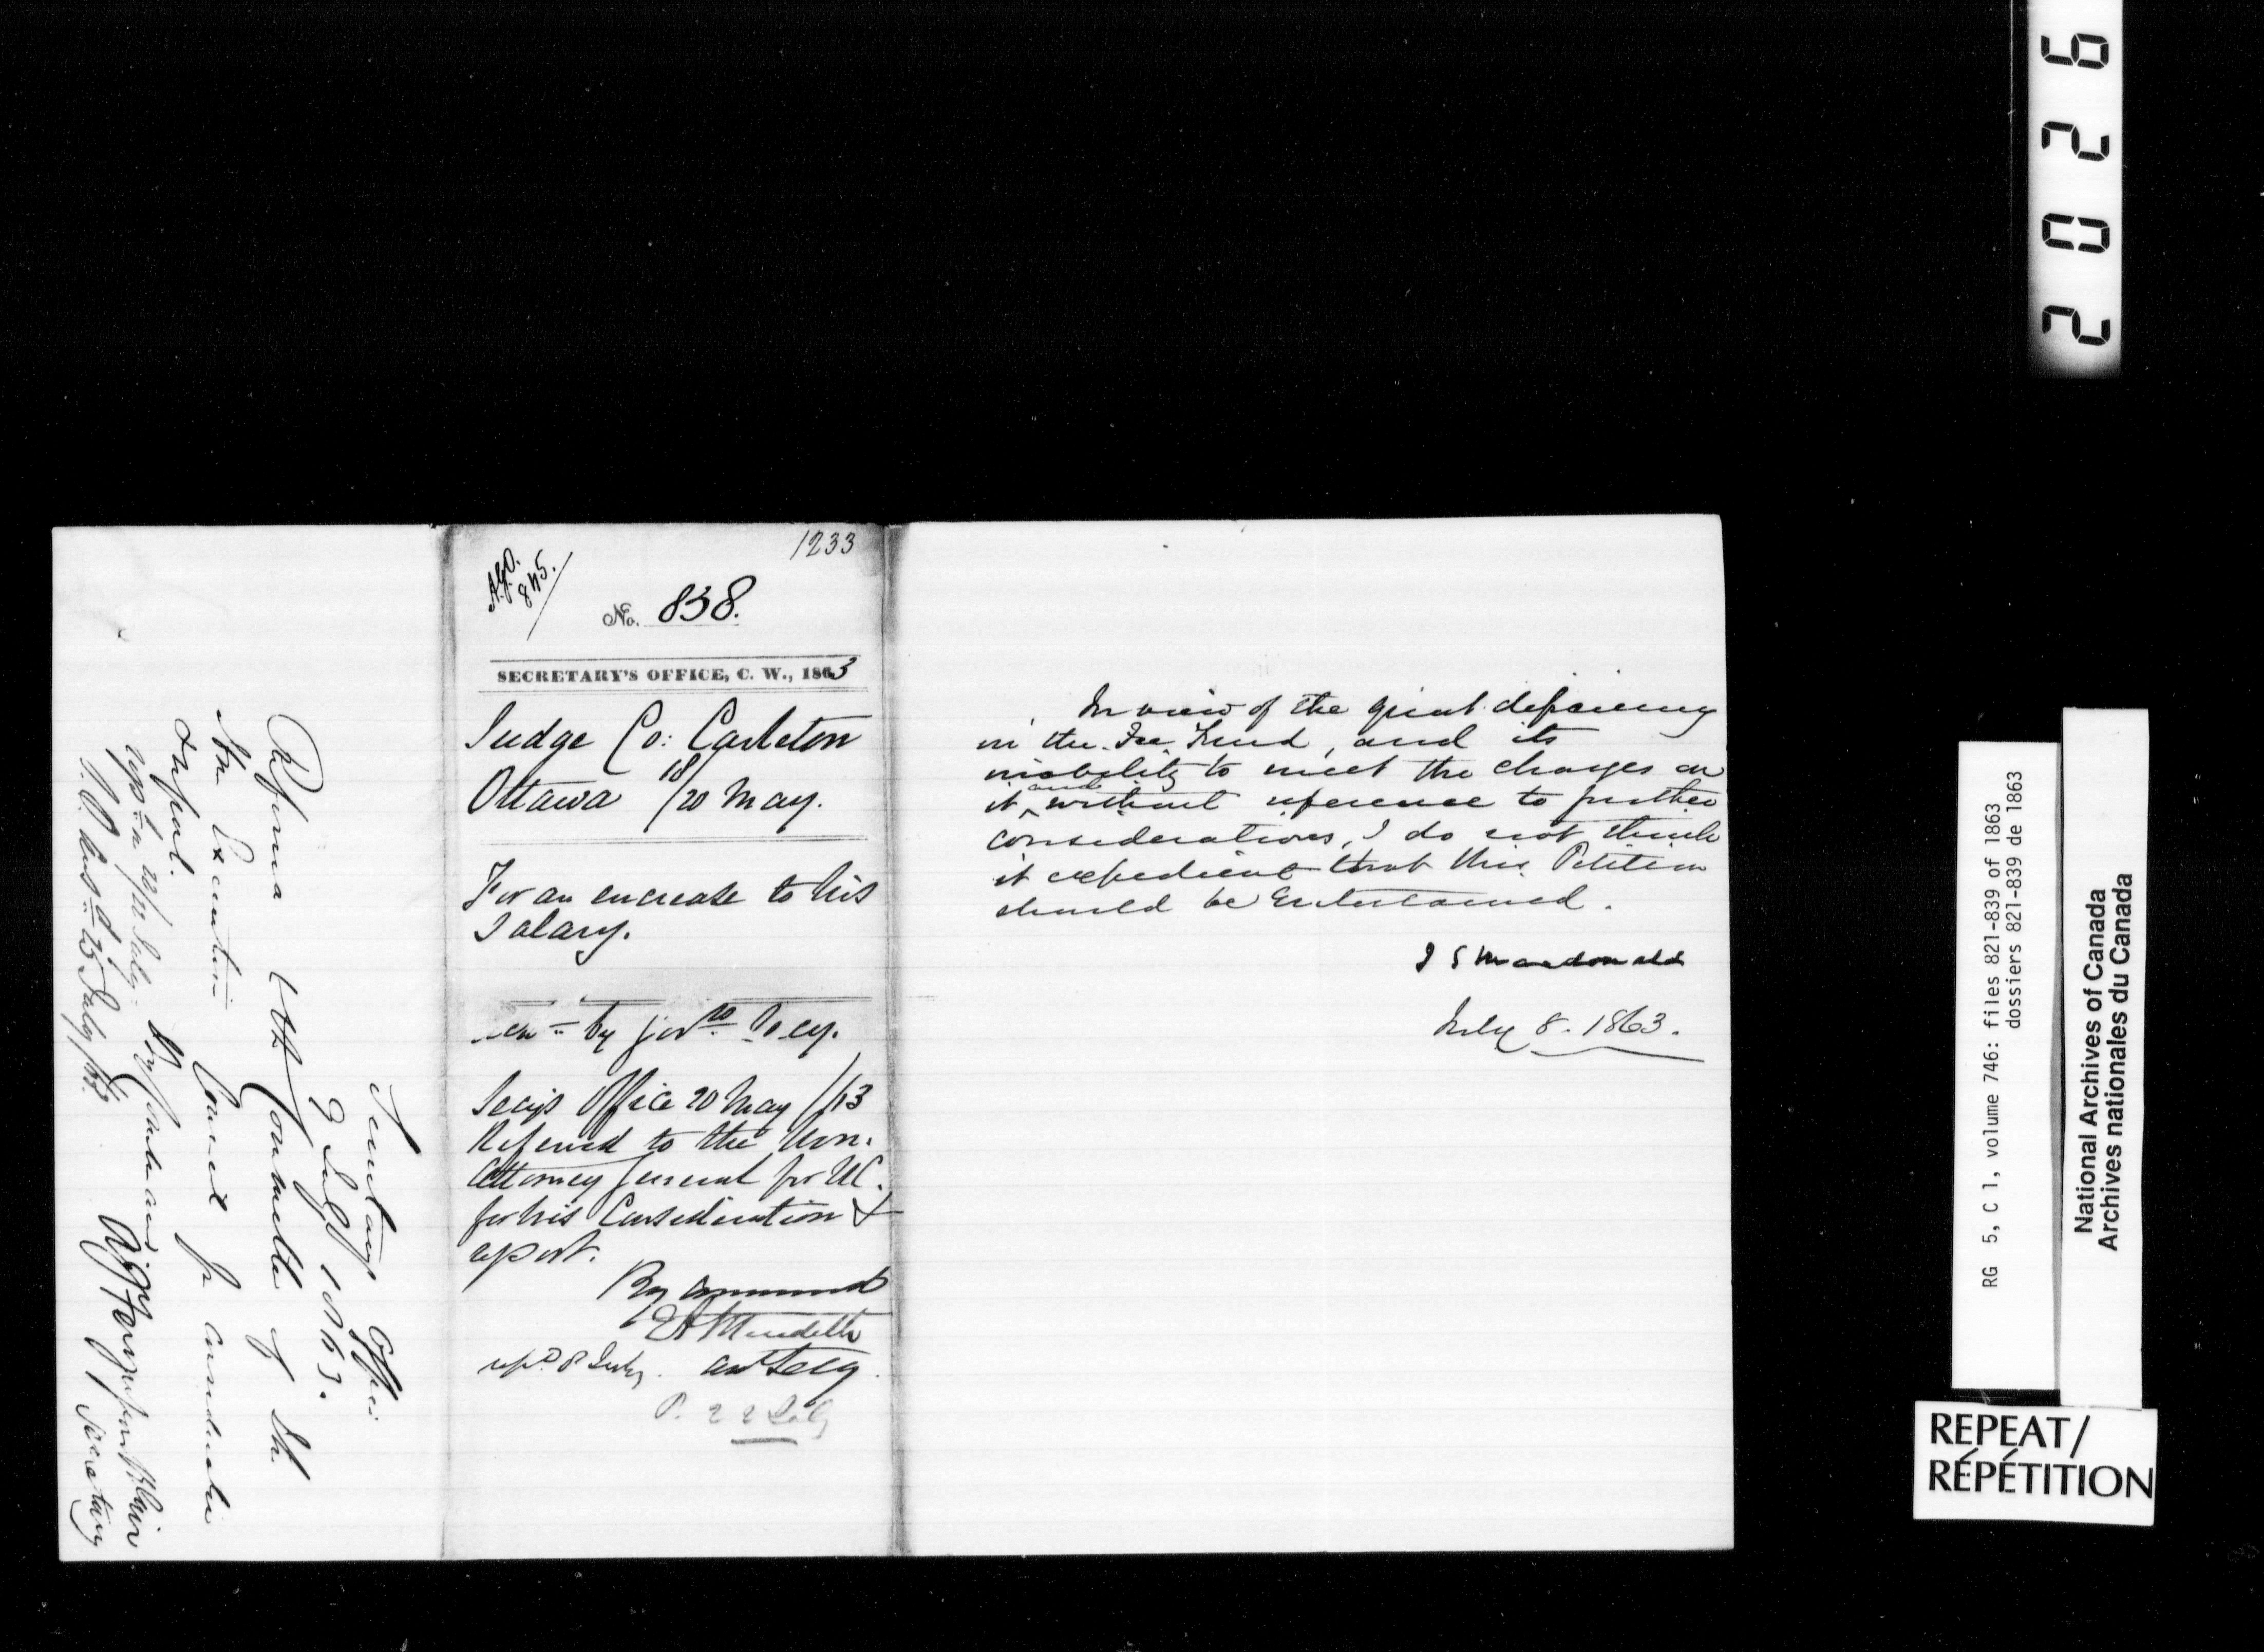 1233
A.G.O.
845.
No. 838.
SECRETARY'S OFFICE, C. W., 1863
Judge Co: Carleton
Ottawa 18/20 May.
For an encrease to his
Salary.
by Gov. Secy.
Secy's Office 20 May /63
Referred to the Hon.
Attorney General for UC.
for his Consideration &
report.
By Command
E A Meredith
Asst Secy.
8 July.
P. 22 July
Secretary's Office
9 July 1863.
Referred to the Committee of the
Hon Executive Council for consideration
& report.
22 July
25 July /63.
A J Fergusson Blair
Secretary
In view of the great deficiency
in the Fee Fund, and its
inability to meet the charges on
it, and without reference to further
considerations, I do not think
it expedient that this Petition
should be Entertained.
J S Macdonald
July 8. 1863.
2026
RG 5, C 1, volume 746: files 821-839 of 1863
dossiers 821-839 de 1863
National Archives of Canada
Archives nationales du Canada
REPEAT/
RÉPÉTITION